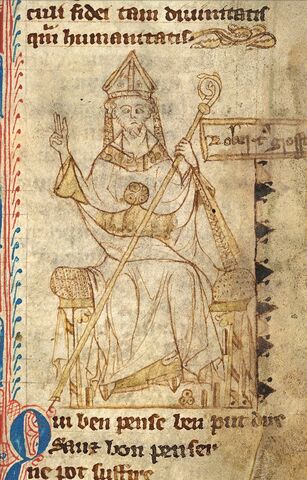 culi fidei tam diuinitatis
qͣm humanitatis
Robertꝰ Grosse
Qui ben pense ben put dire
Sanz bon penser
ne pot suffire